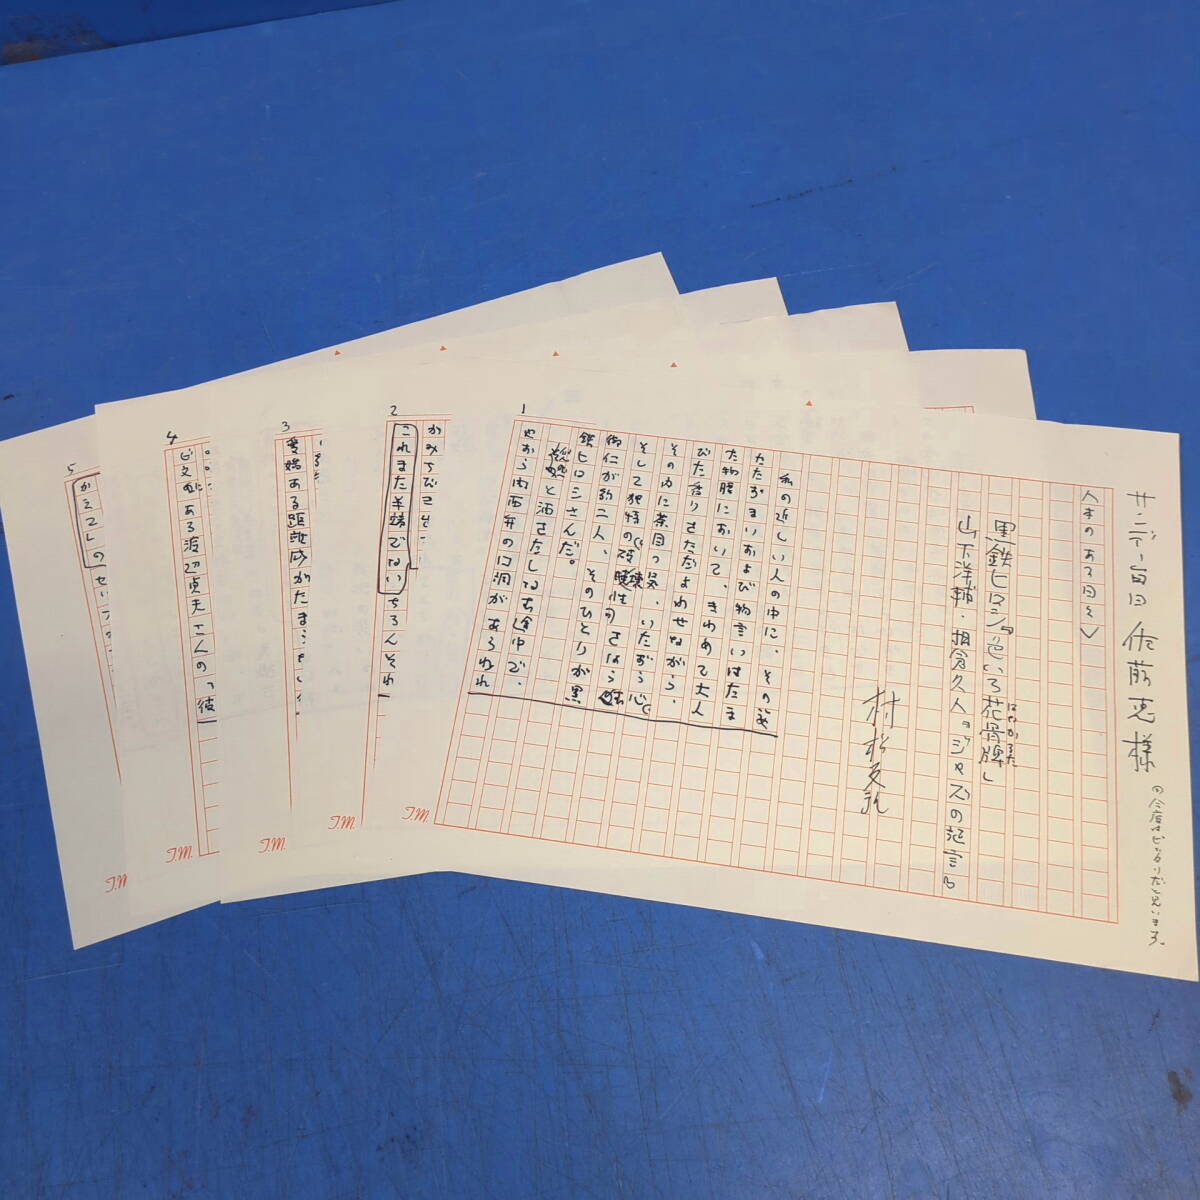 サンデー毎日 佐藤恵様
の今度はピッタリだと思います。
人生のある日々〉
黒鉄ヒロシ『色いろ花骨牌』
はなかるた
山下洋輔・相倉久人『ジャズの証言』
村松友視
1
私の近しい人の中に、その姿
たたずまいおよび物言いはたま
た物腰において、きわめて大人
びた香りをただよわせながら、
その内に茶目っ気、いたずら心、
そして独特の
御仁が約二人、そのひとりが黒
鉄ヒロシさんだ。
悠然と酒をたしなむ途中で、
やおら関西弁の口調があらわれ
2
かみちびき出
これまた半端でない ちろんそれ
3
愛嬌ある距離感がたまらない。
4
ビ文にある渡辺貞夫さんの "彼
5
かえてしのせい
T.M.
T.M.
T.M.
T.M.
T.M